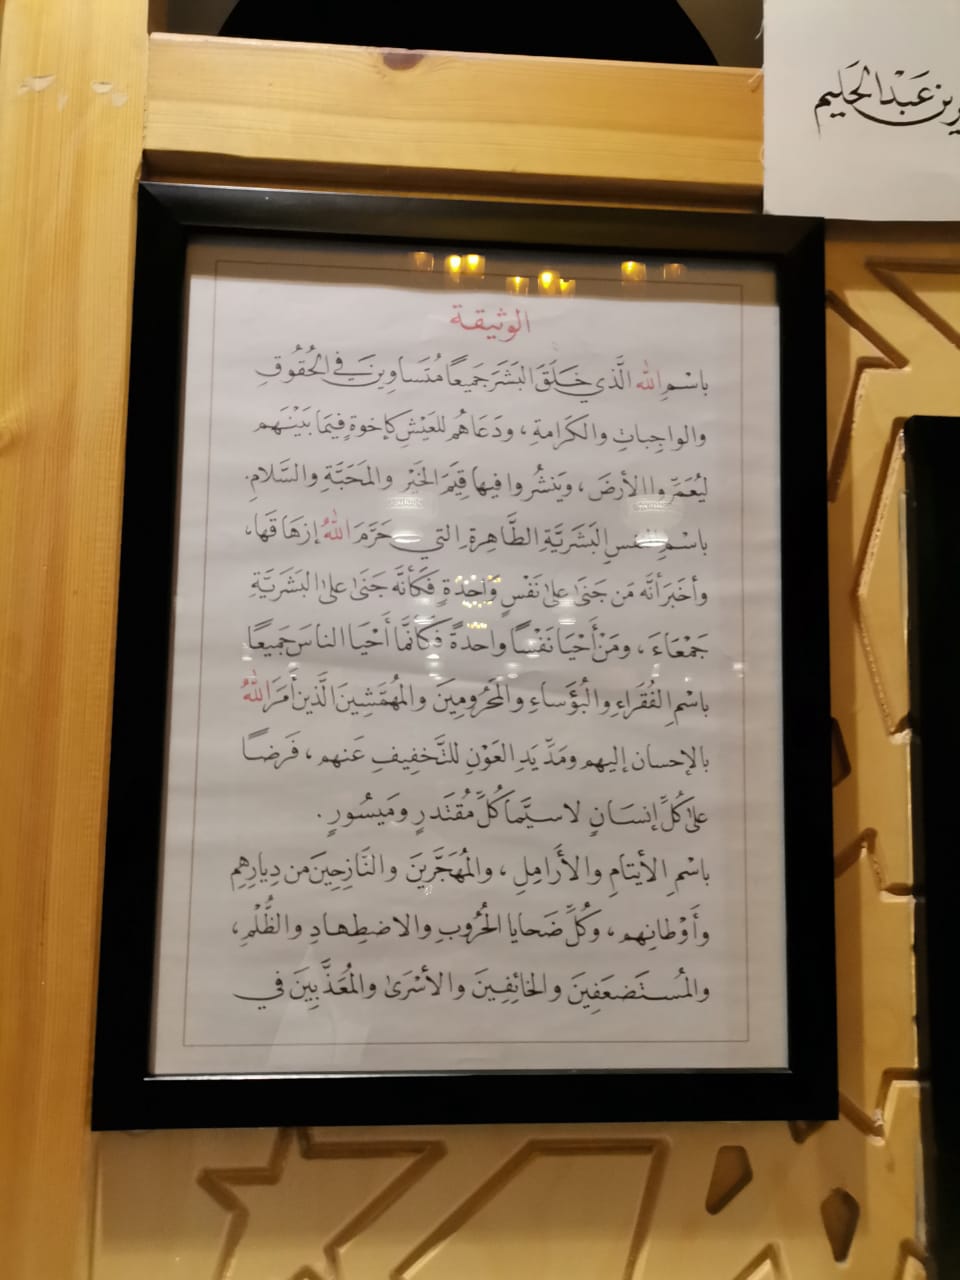 ير بن عَبْد الحَليم
الوثيقة
باسْمِ اللهِ الَّذي خَلَقَ البَشَرَ جَميعًا مُتَساوِينَ في الحُقُوقِ
والواجِباتِ والكَرامةِ، ودَعَاهُم للعَيْشِ كإخوةٍ فِيمَا بَيْنَهم
ليُعَمِّروا الأرضَ، ويَنشُروا فيها قِيَمَ الخَيْرِ والمَحَبَّةِ والسَّلامِ.
باسْمِ النفسِ البَشَريَّةِ الطَّاهِرةِ التي حَرَّمَ اللهُ إزهَاقَها،
وأخبَرَ أنَّه مَن جَنَى على نَفْسٍ وَاحدةٍ فكَأنَّه جَنَى على البَشَريَّةِ
جَمْعَاءَ، ومَنْ أَحْيَا نَفْسًا واحدةً فكَأنَّما أَحْيَا الناسَ جَميعًا
باسْمِ الفُقَراءِ والبُؤَساءِ والمَحْرُومِينَ والمُهَمَّشِينَ الَّذينَ أَمَرَ اللهُ
بالإحسان إليهم ومَدِّ يَدِ العَوْنِ للتَّخفِيفِ عَنهم، فَرضًا
على كُلِّ إنسَانٍ لا سيَّما كُلِّ مُقتَدرٍ ومَيسُورٍ.
باسْمِ الأيتامِ والأَرامِلِ، والمُهَجَّرينَ والنَّازِحِينَ من دِيارِهِم
وأَوْطانِهم، وكُلِّ ضَحايا الحُرُوبِ والاضطِهادِ والظُّلْمِ،
والمُستَضعَفِينَ والخائِفِينَ والأسْرَى والمُعَذَّبِينَ في